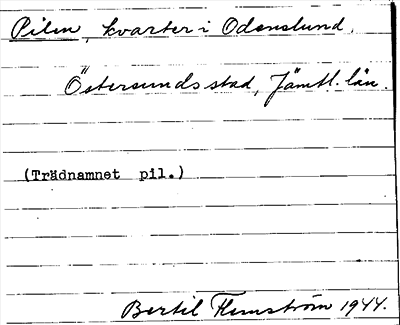 Pilen, kvarter i Odenslund,
Östersunds stad, Jämtl. län.
(Trädnamnet pil.)
Bertil Flemström 1944.